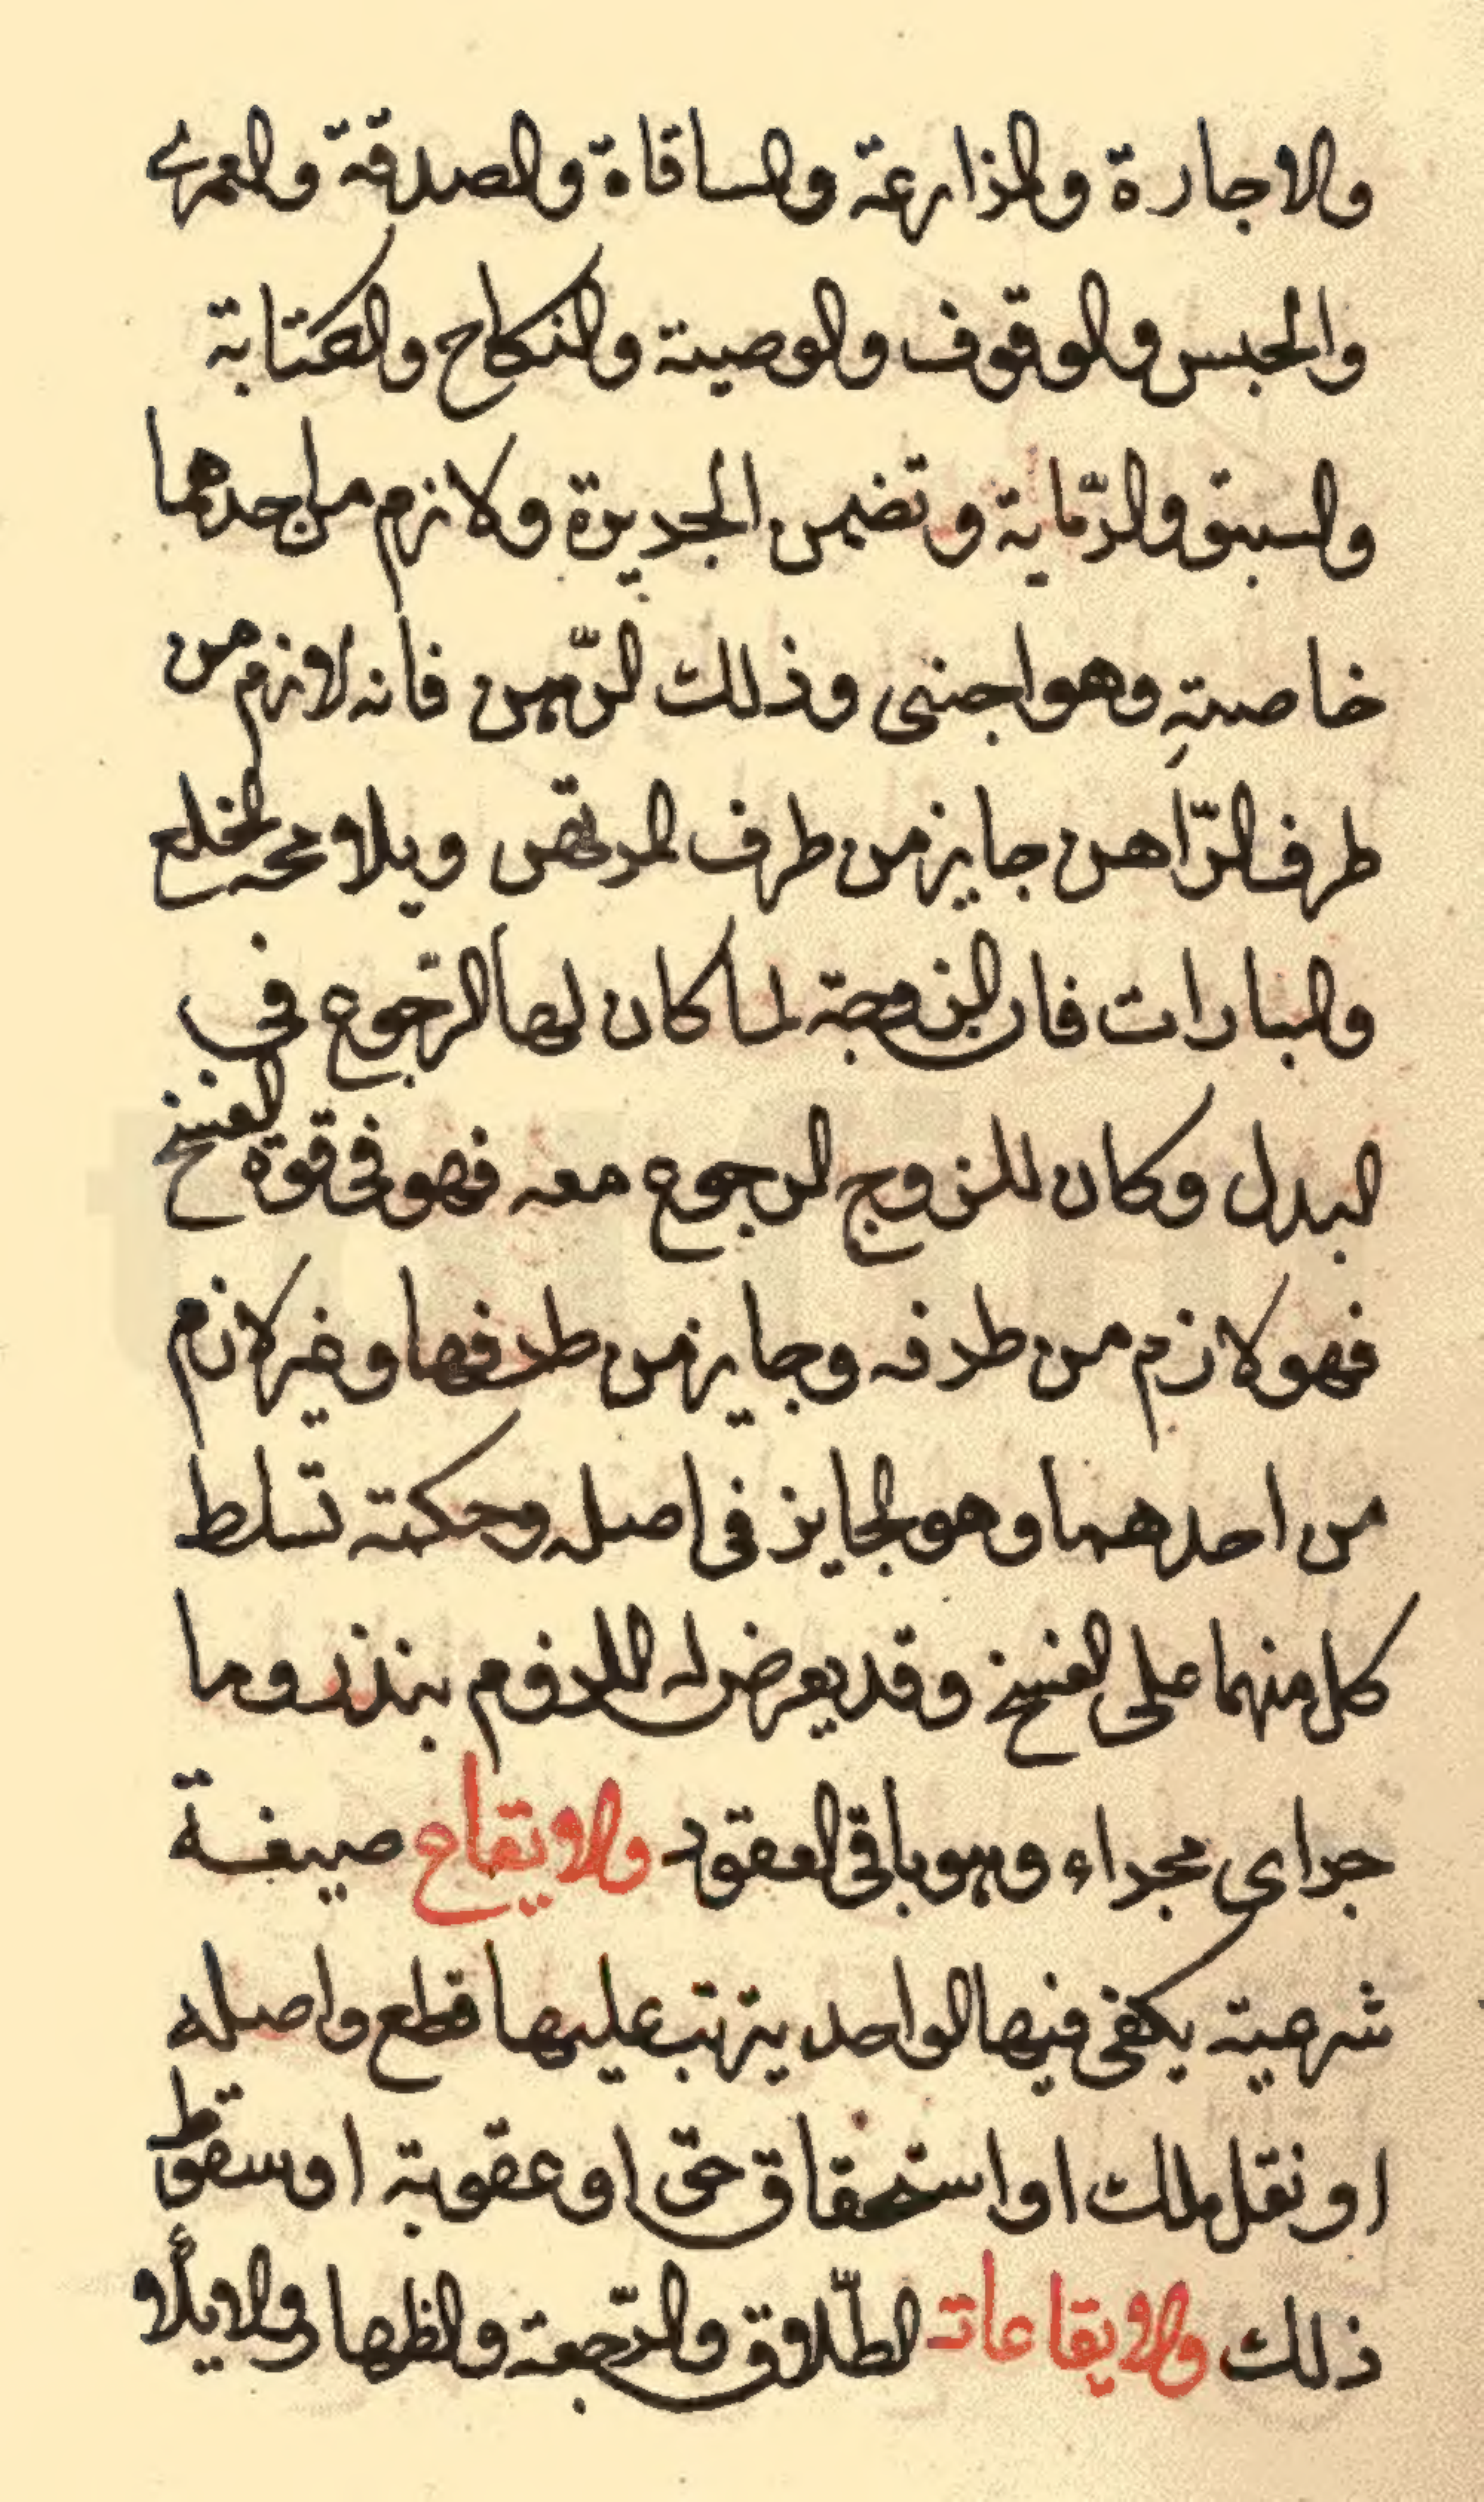 والاجارة والمزارعة والمساقاة والصدقة والعمرى
والحبس والوقوف والوصية والنكاح والكتابة
والسبق والرّماية وتضمن الجريرة ولازم من احدهما
خاصةِ وهو اجنبى وذلك الرّهن فانه لازم من
طرف الرّاهن جايز من طرف المرتهن ويلا الخلع
والمبارات فان الزوجة لما كان لها الرّجوع فى
البدل وكان للزوج الرجوع معه فهو فى قوة الفسخ
فهو لازم من طرفه وجايز من طرفها وغير لازم
من احدهما وهو الجايز فى اصله وحكمته تسلط
كل منهما على الفسخ وقد يعرض له اللزوم بنذر وما
جراى مجراء وهو باقى العقود والايقاع صيغة
شرعية يكفى فيها الواحد يترتب عليها قطع واصله
او نقل ملك او استحقاق حق او عقوبة او سقوط
ذلك والايقاعات الطّلاق والرّجعة والظهار والايلأ